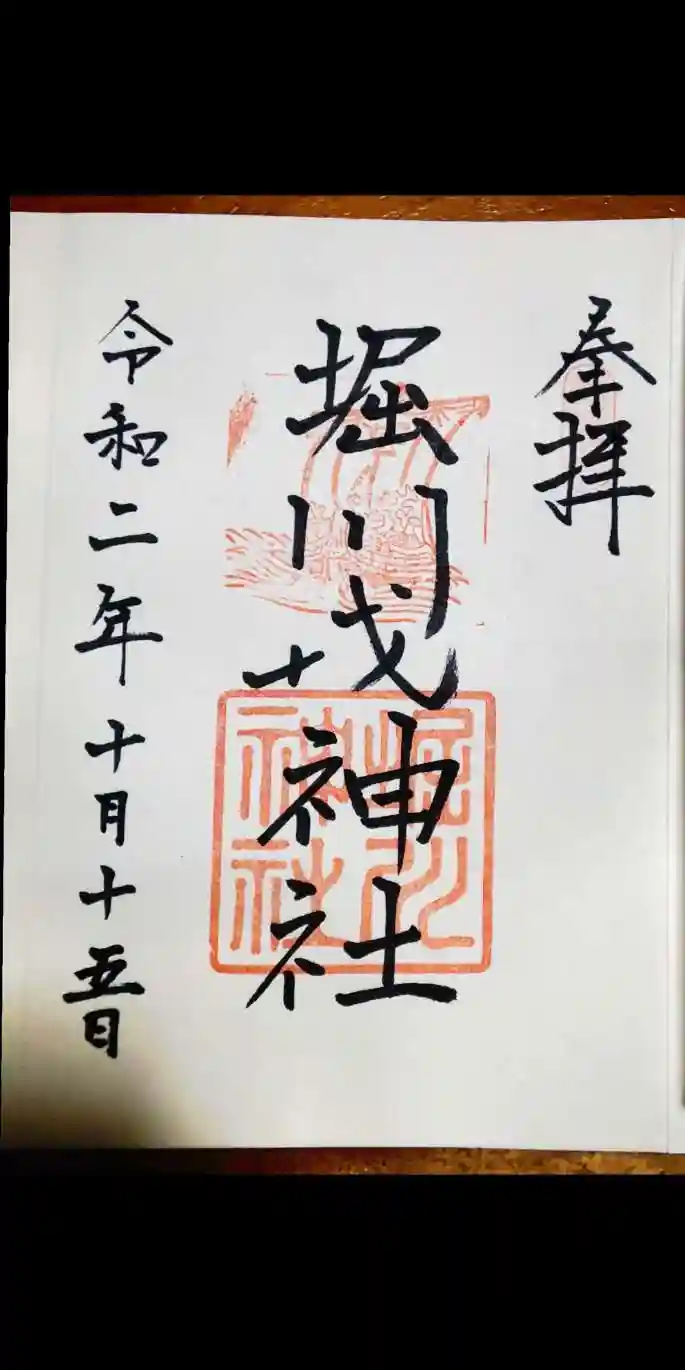 奉拝
堀川戎神社
堀川
神社
令和二年十月十五日